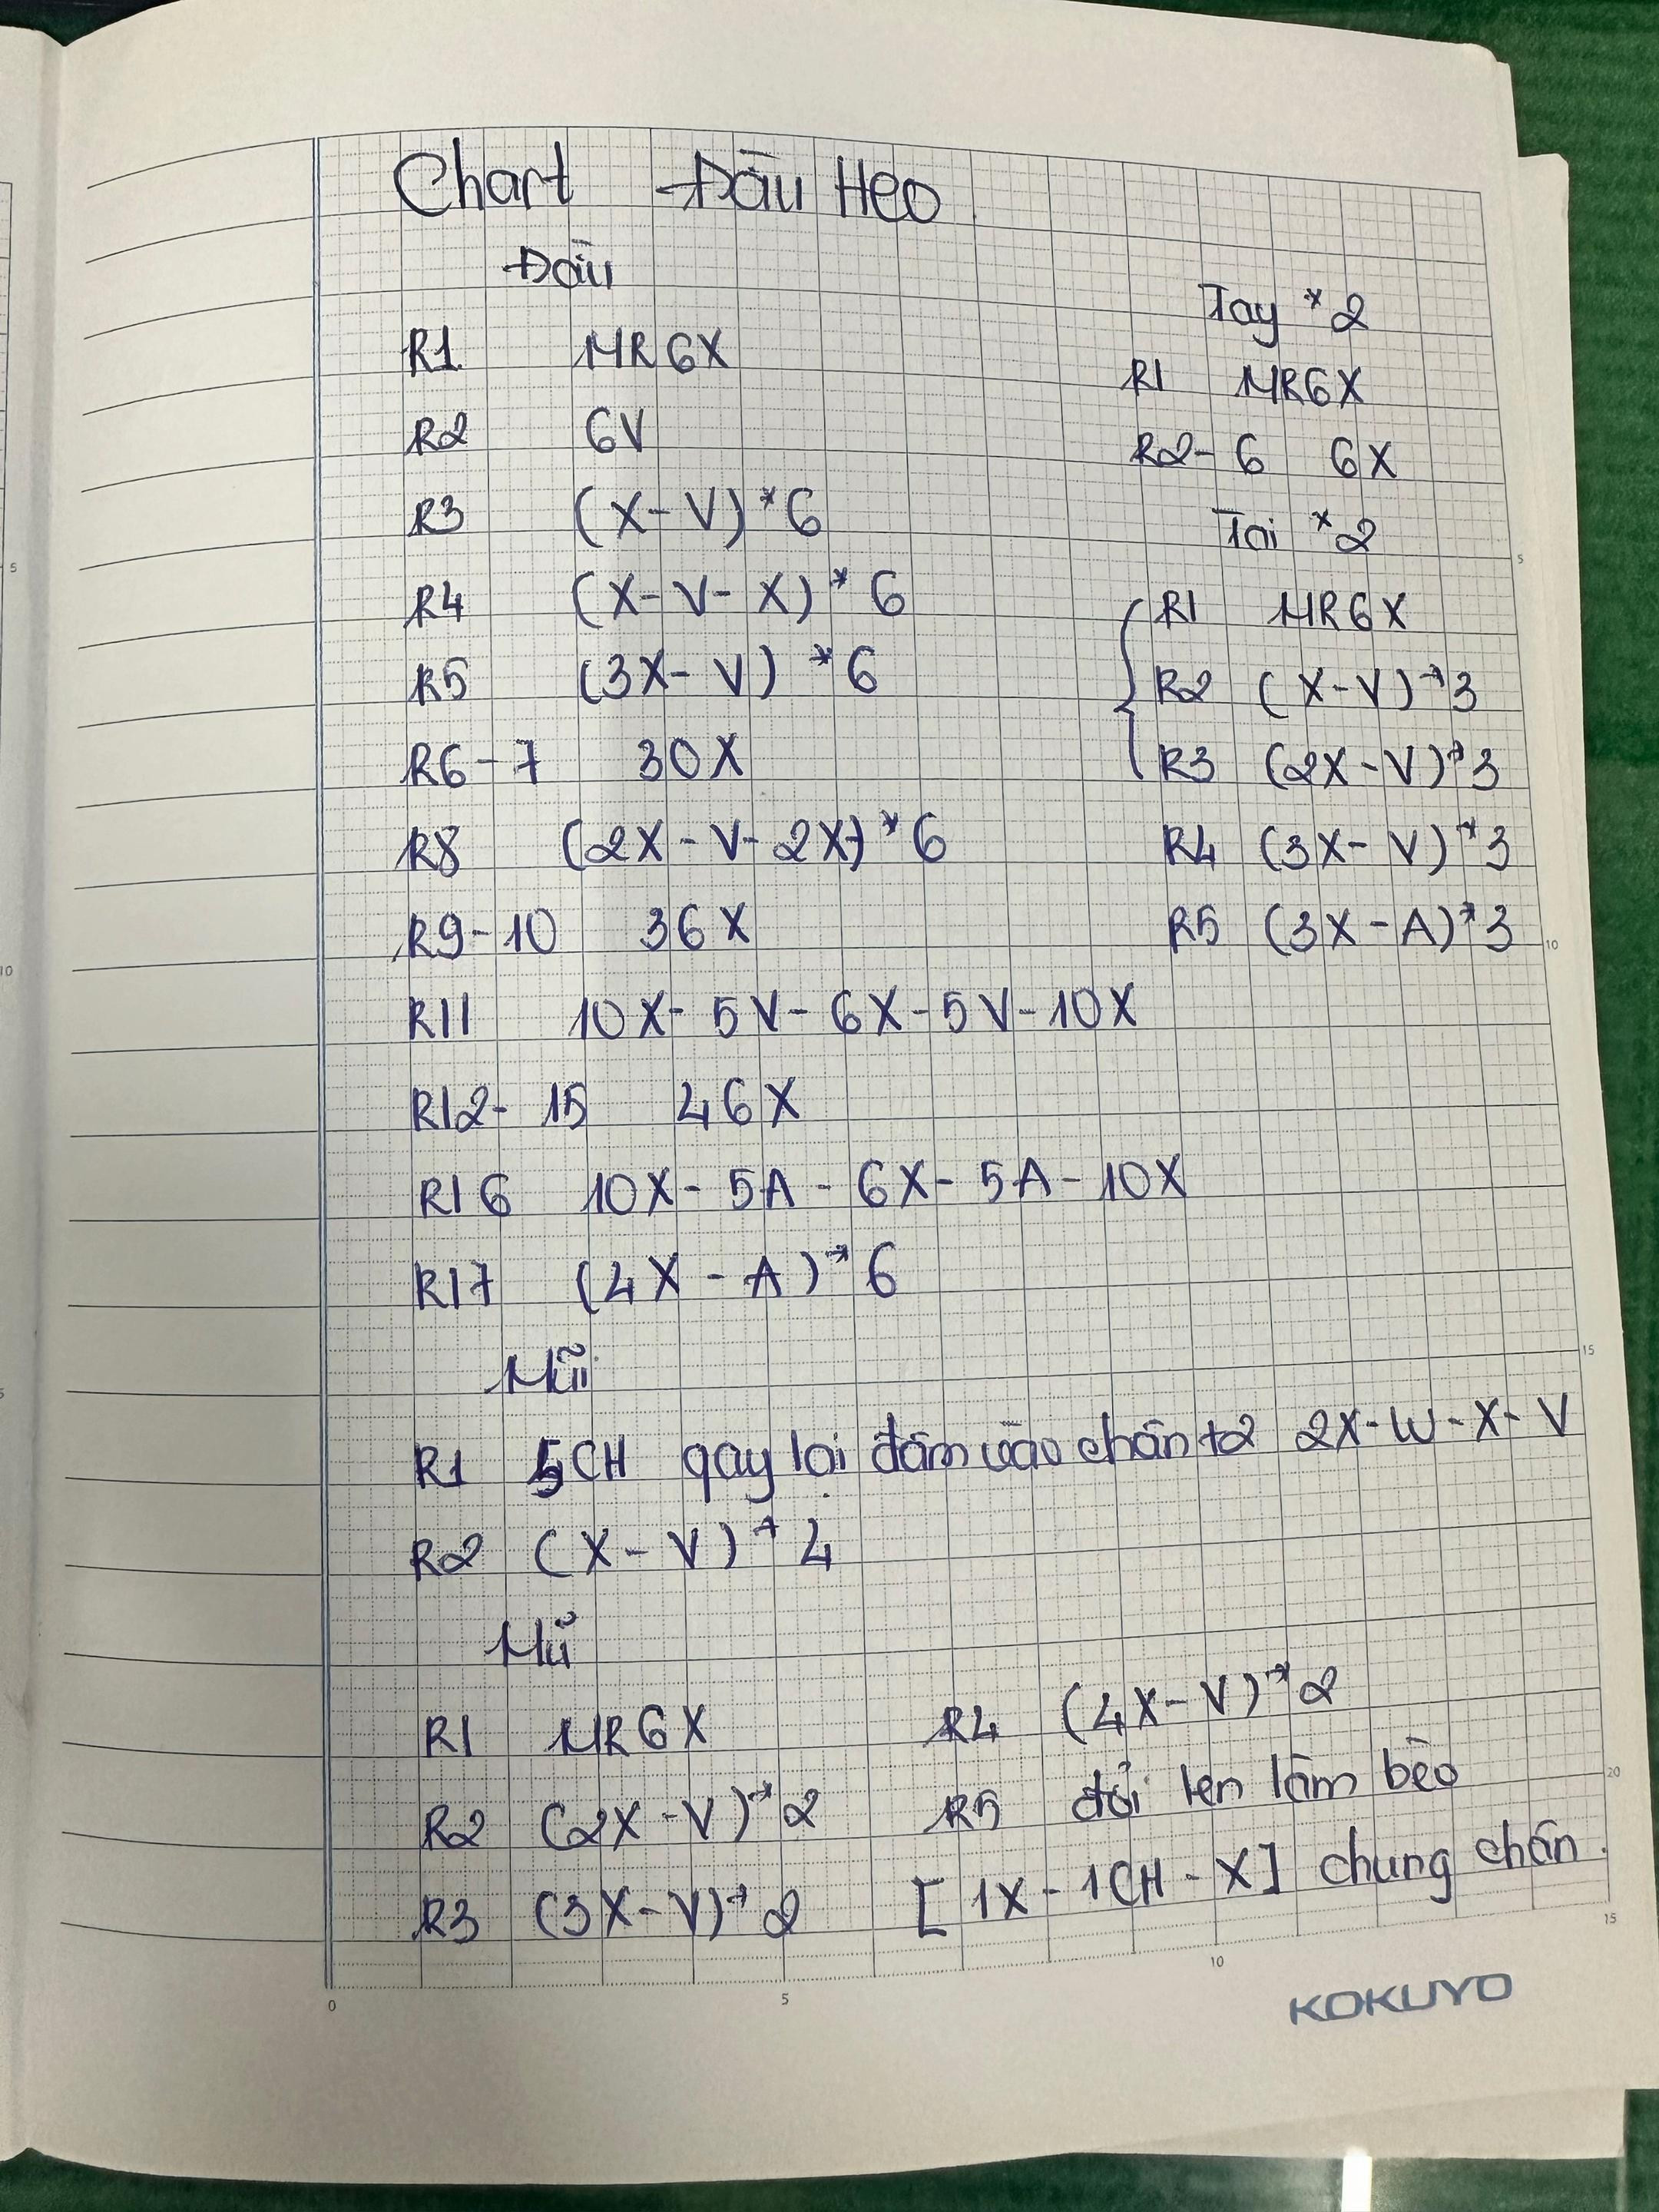 Chart Đầu Heo
Đầu
R1 MR6X
R2 6V
R3 (X-V)*6
R4 (X-V-X)*6
R5 (3X-V)*6
R6-7 30X
R8 (2X-V-2X)*6
R9-10 36X
R11 10X-5V-6X-5V-10X
R12-15 46X
R16 10X-5A-6X-5A-10X
R17 (4X-A)*6
Tay *2
R1 MR6X
R2-6 6X
Tai *2
R1 MR6X
R2 (X-V)*3
R3 (2X-V)*3
R4 (3X-V)*3
R5 (3X-A)*3
Mũi
R1 5CH quay lại đâm vào chân t2 2X-W-X-V
R2 (X-V)*4
Mũ
R1 MR6X
R2 (2X-V)*2
R3 (3X-V)*2
R4 (4X-V)*2
R5 đổi len làm bèo
[1X-1CH-X] chung chân.
5
10
15
20
0
5
10
15
KOKUYO
5
10